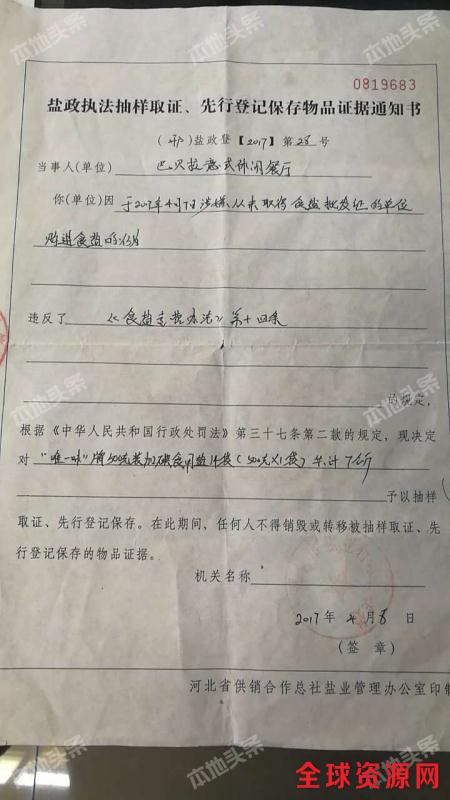 本地头条
本地头条
0819683
盐政执法抽样取证、先行登记保存物品证据通知书
盐政登【2017】第28号
当事人(单位) 巴贝拉意式休闲餐厅
你(单位)因 于2017年4月7日涉嫌从未取得食盐批发证的单位
购进食盐的行为
违反了 《食盐专营办法》第十四条
本地头条
本地头条
的规定,
根据《中华人民共和国行政处罚法》第三十七条第二款的规定,现决定
对 "唯一味"牌500克装加碘食用盐14袋(500克×1袋)共计7公斤
予以抽样
取证、先行登记保存。在此期间,任何人不得销毁或转移被抽样取证、先
行登记保存的物品证据。
机关名称
2017年 4月8日
(签 章)
河北省供销合作总社盐业管理办公室印制
本地头条
本地头条
全球资源网